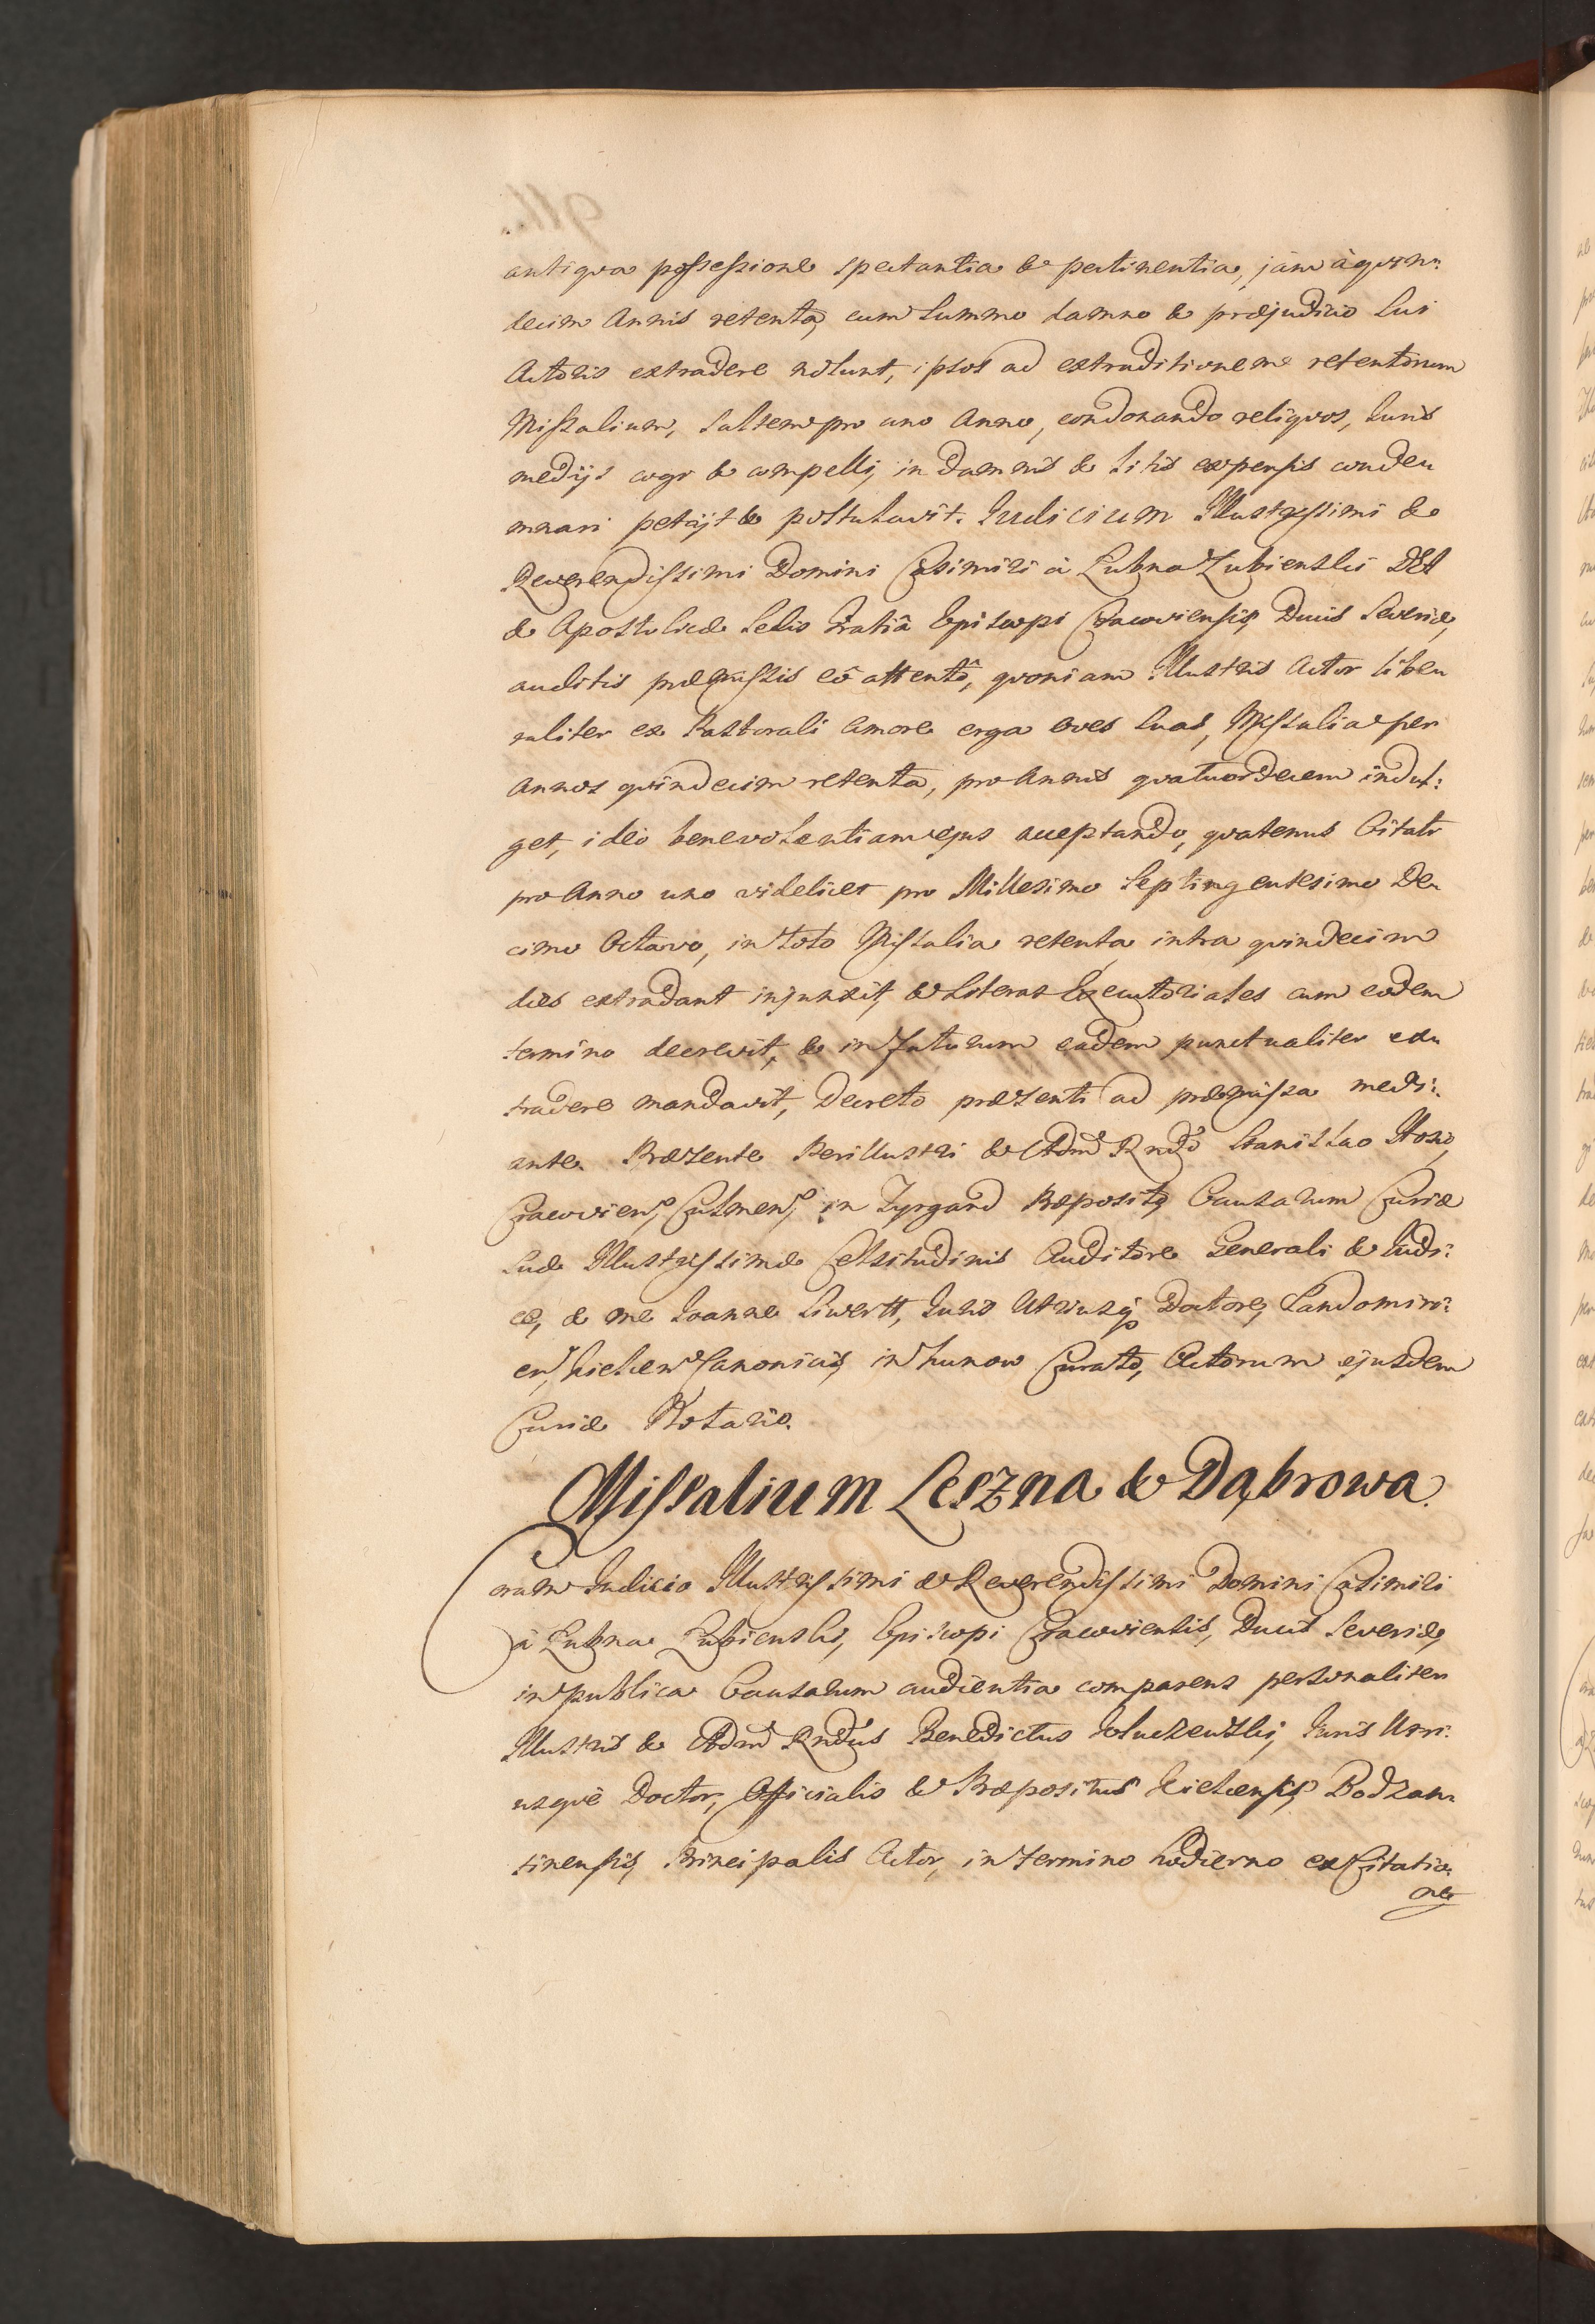 antiqva possessione spectantia & pertinentia, jàm à qvin=
decim Annis retenta, cum summo damno & præjudicio sui
Actoris extradere nolunt, ipsos ad extraditionem retentorum
Missalium, saltem pro uno Anno, condonando reliqvos, Iuris
medijs cogi & compelli, in damnis & Litis expensis conde=
mnari petijt & postulavit. Iudicium Illustrissimi &
Reverendissimi Domini Casimiri à Łubna Łubienski DEI
& Apostolicæ Sedis Gratiâ Episcopi Cracoviensis, Ducis Severiæ,
auditis præmissis eô attentô, qvoniam Illustris Actor libe=
raliter ex Pastorali Amore erga oves suas, Missalia per
Annos qvindecim retenta, pro Annis qvatuordecem indul=
get, ideò benevolentiam ejus acceptando, qvatenus Citati
pro Anno uno videlicet pro Millesimo Septingentesimo De=
cimo Octavo, in toto Missalia retenta intra qvindecim
dies extradant injunxit, & Literas Executoriales cum eodem
termino decrevit, & in futurum eadem punctualiter ex=
tradere mandavit, Decreto præsenti ad præmissa medi=
ante. Præsente Perillustri & Adm Rndo Stanislao Hosio,
Cracovien, Culmen, in Zyrgand Præposito, Causarum Curiæ
Suæ Illustrissimæ Celsitudinis Auditore Generali & Iudi=
ce, & me Ioanne Siwertt, Iuris Utriusq Doctore, Sandomiri=
en, Kielcen Canonico, in Kunow Curato, Actorum ejusdem
Curiæ Notario.
Missalium Leszna & Dąbrowa.
Coram Iudicio Illustrissimi & Reverendissimi Domini Casimiri
à Łubna Łubienski, Episcopi Cracoviensis, Ducis Severiæ,
in publica Causarum audientia comparens personaliter
Illustris & Adm Rndus Benedictus Iuris Utri=
usqvè Doctor, Officialis & Præpositus Kielcensis, Bodzan=
tinensis, Principalis Actor, in termino hodierno ex Citatio=
ne